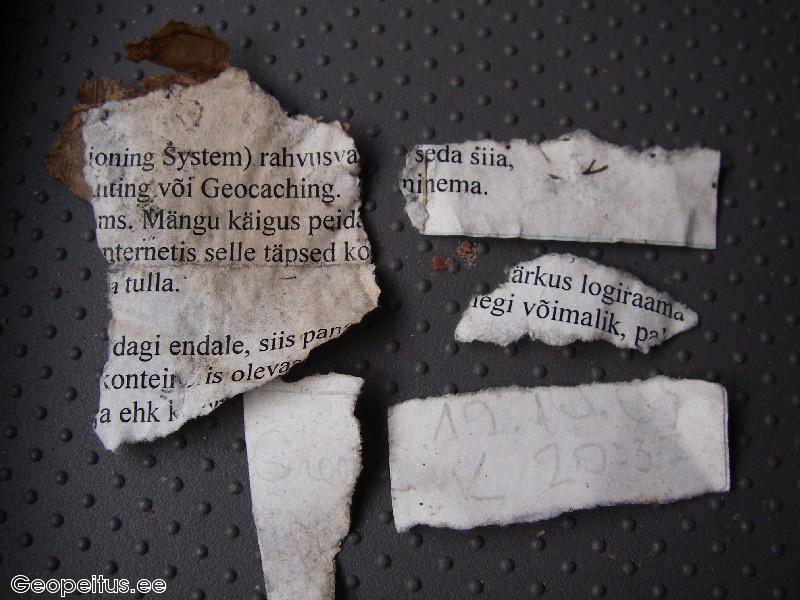 ioning System) rahvusva
nting või Geocaching.
ms. Mängu käigus peida
nternetis selle täpsed ko
a tulla.
dagi endale, siis pan
kontein is olevas
a ehk k
seda siia,
ninema.
ärkus logiraama
legi võimalik, pa
19.10.03
20:3
Geopeitus.ee